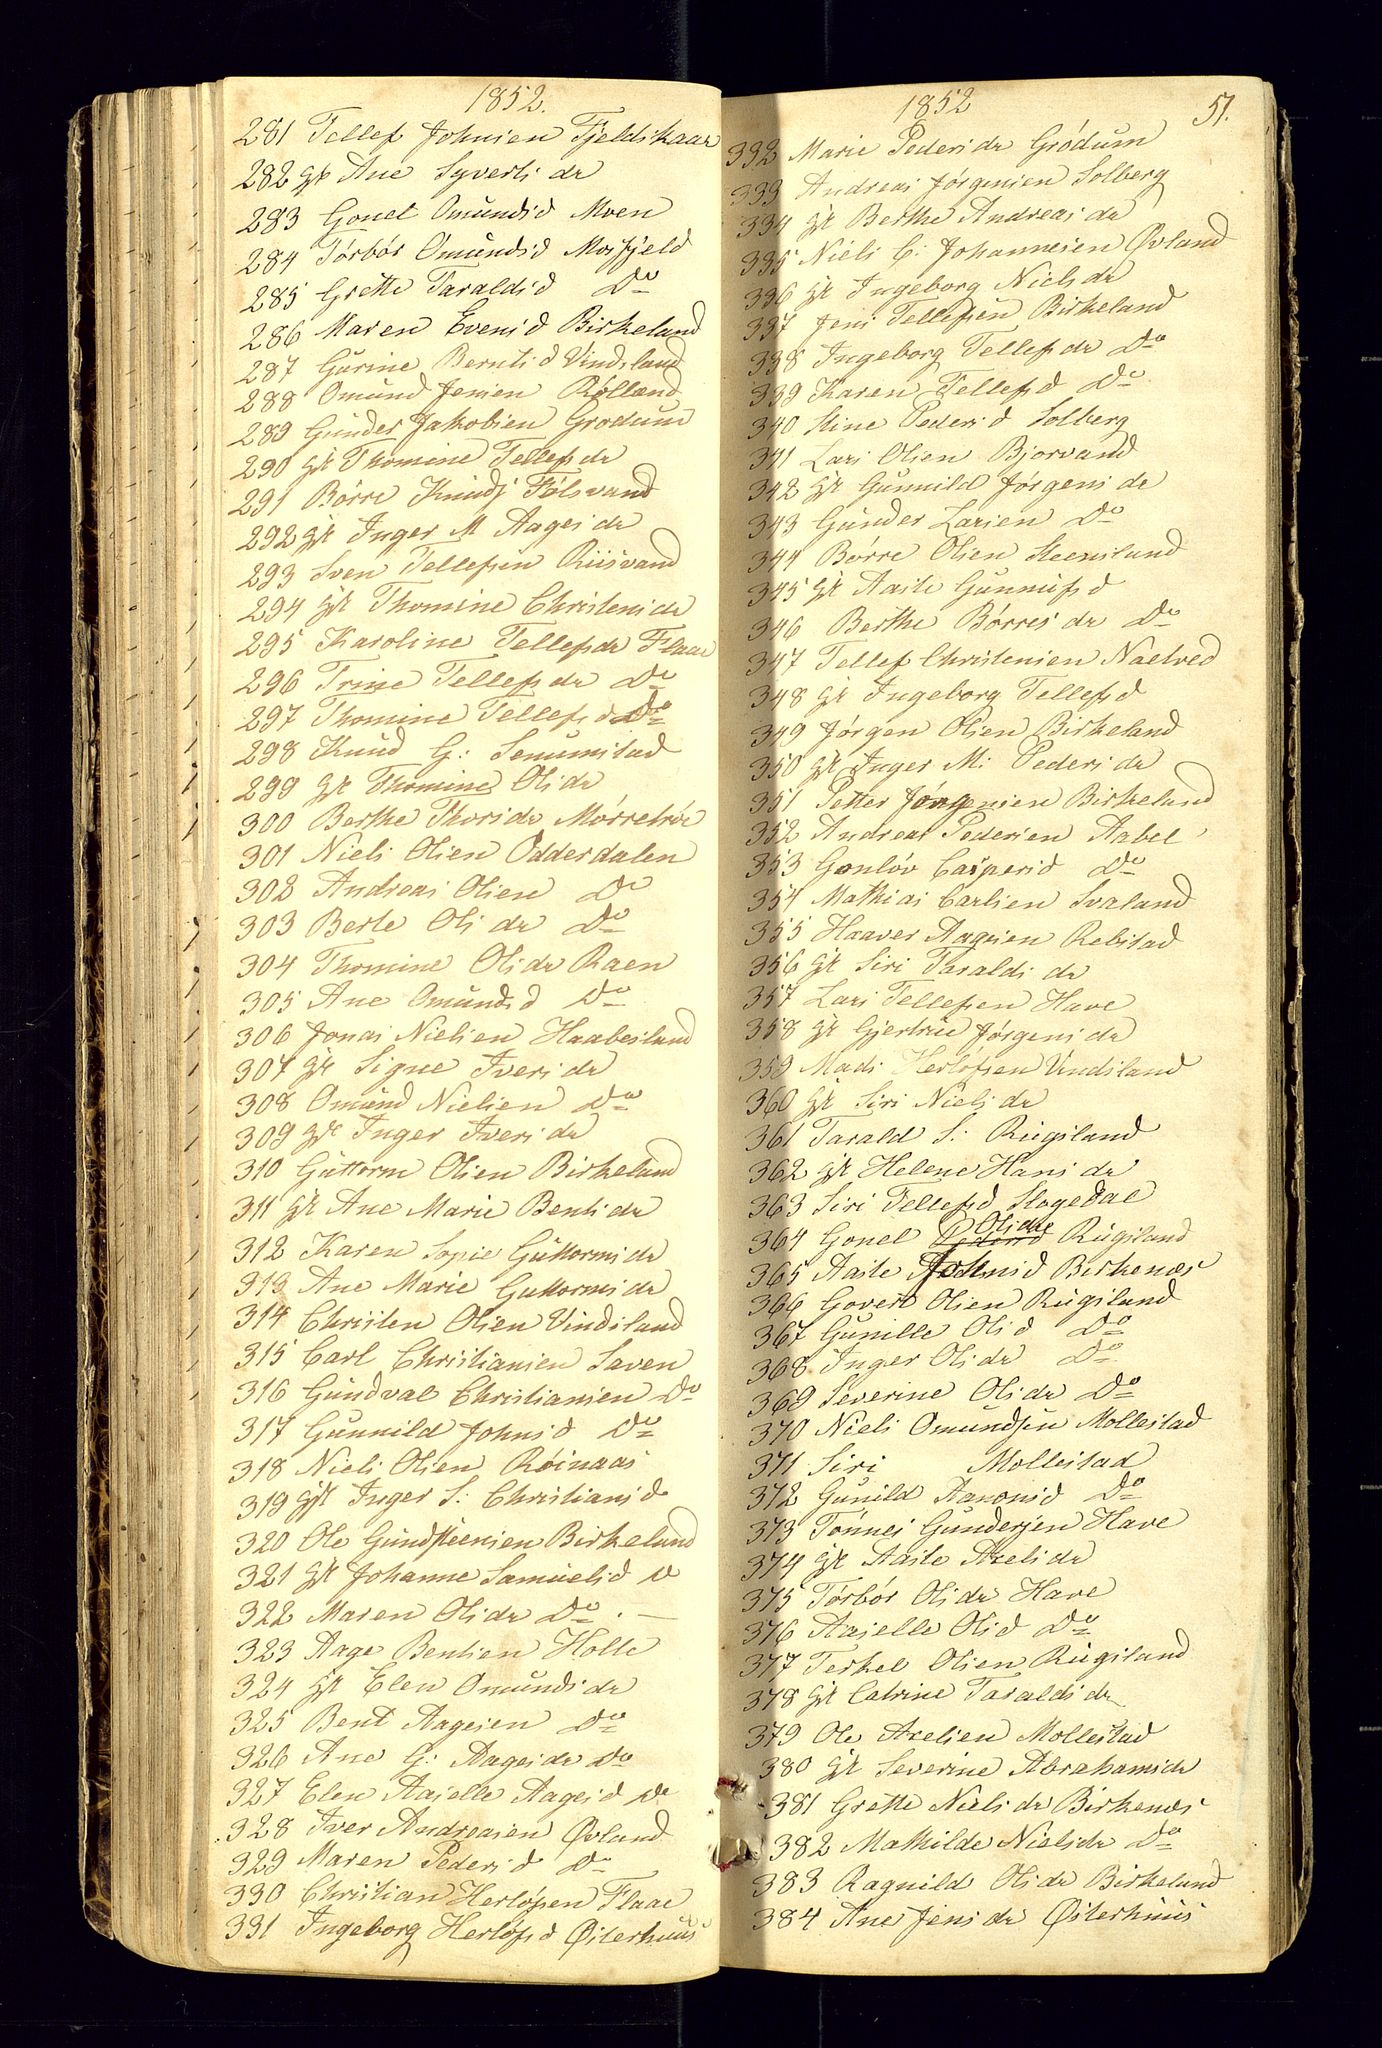 1852.
281 Tellef Johnsen Fjeldskaar
282 gt Ane Syverts dr
283 Gonel Omunds d Moen
284 Törbör Omunds d Mosfjeld
285 Grette Taralds d Do
286 Maren Evens d Birkeland
287 Gurine Bernts d Vindsland
288 Omund Jensen Rolland
289 Gunder Jakobsen Grodum
290 gt Thomine Tellefs dr
291 Börre Knuds Fölsvand
292 gt Inger M Aages dr
293 Sven Tellefsen Riisvand
294 gt Thomine Christens dr
295 Karoline Tellefs dr Flaae
296 Trine Tellefs dr Do
297 Thomine Tellefs d Do
298 Knud G: Senumstad
299 gt Thomine Ols dr
300 Berthe Thors dr
301 Niels Olsen Odderdalen
302 Andreas Olsen Do
303 Berte Ols dr Do
304 Thomine Ols dr Raen
305 Ane Omunds d Do
306 Jonas Nielsen Haabesland
307 gt Signe Ivers dr
308 Omund Nielsen Do
309 gt Inger Ivers dr
310 Guttorm Olsen Birkeland
311 gt Ane Marie Bents dr
312 Karen Sopie Guttorms dr
313 Ane Marie Guttorms dr
314 Christen Olsen Vindsland
315 Carl Christiansen Saven
316 Gundval Christiansen Do
317 Gunnild Johns d Do
318 Niels Olsen Röinaas
319 gt Inger S: Christians d
320 Ole Gundstensen Birkeland
321 gt Johanne Samuels d D
322 Maren Ols dr Do . —
323 Aage Bentsen Holte
324 gt Elen Omunds dr
325 Bent Aagesen Do
326 Ane G: Aages dr Do
327 Elen Aaselle Aages d Do
328 Iver Andreasen Øvland
329 Maren Peders d Do
330 Christian Herlöfsen Flaae
331 Ingeborg Herlöfs d Østerhuus
1852 51.
332 Marie Peders dr Gródum
333 Andreas Jörgensen Solberg
334 gt Berthe Andreas dr
335 Niels C: Johannesen Øvland
336 gt Ingeborg Niels dr
337 Jens Tellefsen Birkeland
338 Ingeborg Tellefs dr Do
339 Karen Tellefs d Do
340 Stine Peders d Solberg
341 Lars Olsen Bjorvand
342 gt Gunnild Jörgens dr
343 Gunder Larsen Do
344 Börre Olsen Steensland
345 gt Aaste Gunnufs d
346 Berthe Börres dr Do
347 Tellef Christensen Naelved
348 gt Ingeborg Tellefs d
349 Jörgen Olsen Birkeland
350 gt Inger M: Peders dr
351 Petter Jörgensen Birkeland
352 Andreas Pedersen Aabel
353 Gonlöv Caspers d Do
354 Mathias Carlsen Svaland
355 Haaver Aagesen Rebstad
356 gt Siri Taralds dr
357 Lars Tellefsen Have
358 gt Gjertrue Jörgens dr
359 Mads Herlofsen Vindsland
360 gt Siri Niels dr
361 Tarald S: Rugsland
362 gt Helene Hans dr
363 Siri Tellefs d Stogedal
364 Gonel Ols dr Rugsland
365 Aaste Johns d Birkenæs
366 Govert Olsen Rugsland
367 Gunille Ols d Do
368 Inger Ols dr Do
369 Severine Ols dr Do
370 Niels Omundsen Mollestad
371 Siri Mollestad
372 Gunild Aanons d Do
373 Tönnes Gundersen Have
374 gt Aaste Axels dr
375 Törbör Ols dr Have
376 Aaselle Ols d Do
377 Terkel Olsen Rugsland
378 gt Catrine Taralds dr
379 Ole Axelsen Mollestad
380 gt Severine Abrahams dr
381 Grette Niels dr Birkenæs
382 Mathilde Niels dr Do
383 Ragnild Ols dr Birkeland
384 Ane Jens dr Østerhuus